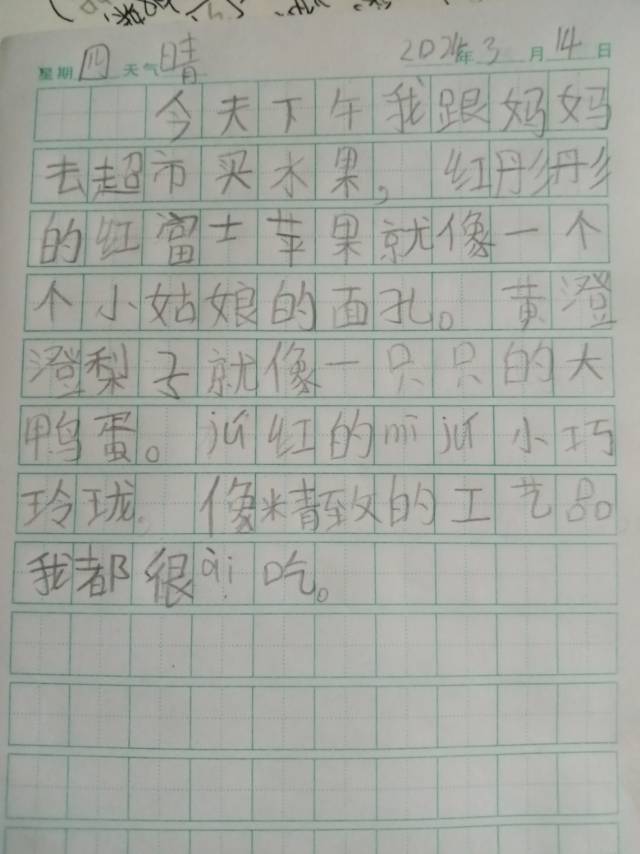 星期四 天气晴 2024年3月14日
今天下午我跟妈妈
去超市买水果，红彤彤
的红富士苹果就像一个
个小姑娘的面孔。黄澄
澄梨子就像一只只的大
鸭蛋。jú红的mí jú小巧
玲珑。像精致的工艺品
我都很ài吃。